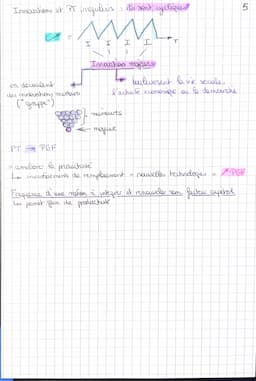 Innovations et PT irréguliers : ils sont cycliques
5
I I I I
T
Innovations majeures
en découlent
des innovations mineures
("grappe")
bouleversent la vie sociale,
l'activité économique ou la démarche
mineures
majeure
PT → PGF
= améliore la productivité
↳ investissements de remplacement = nouvelles technologies = ↗ PGF
Capacité d'une nation à intégrer et renouveler son facteur capital
↳ permet gain de productivité